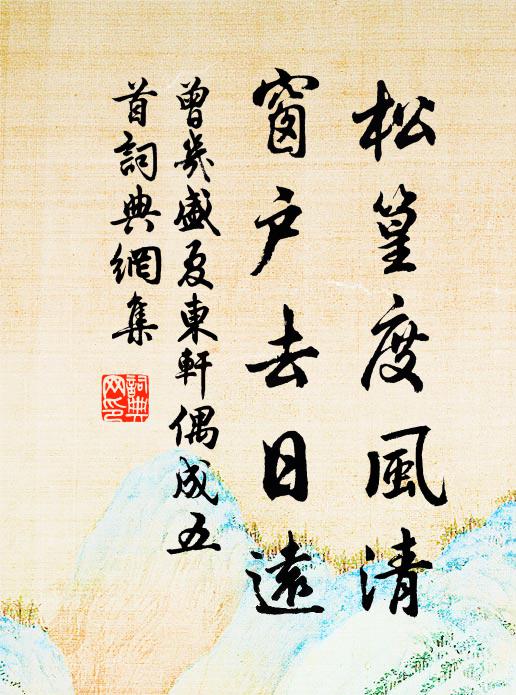 松篁度風清
窗户去日遠
曾幾盛夏東軒偶成五
首詞典網集
詞典
网印